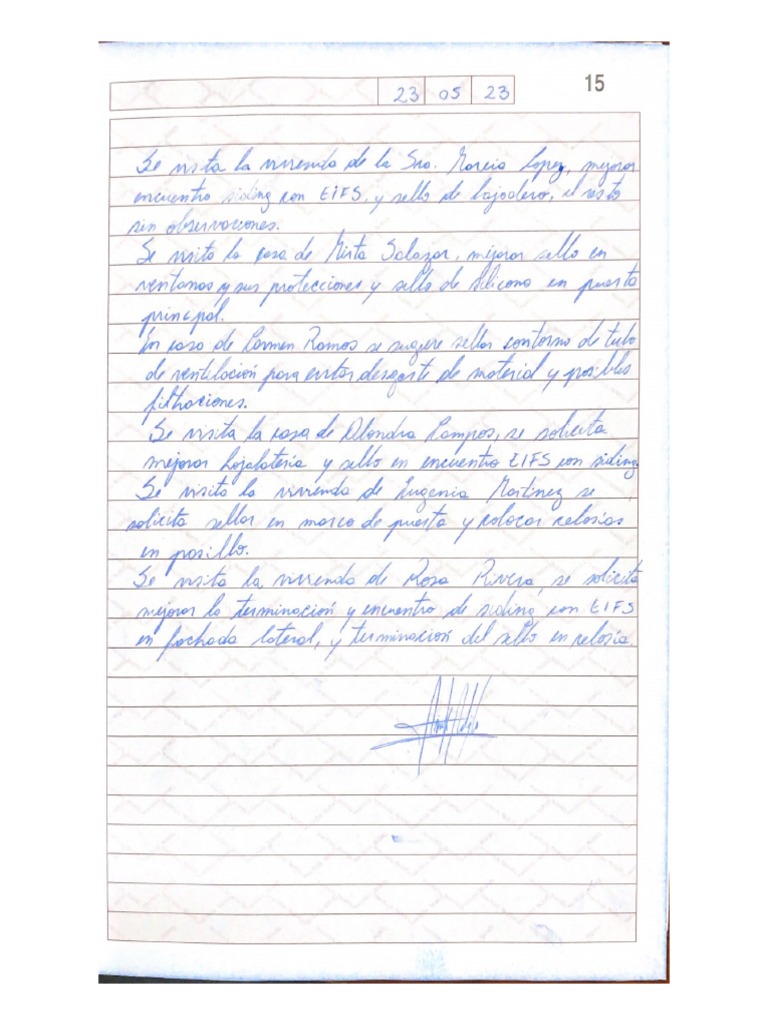 23 05 23
15
Se visita la vivienda de la Sra. Marcia Lopez, mejorar
encuentro siding con EIFS, y sello de bajadero, el resto
sin observaciones.
Se visita la casa de Mirta Salazar, mejorar sello en
ventanas y sus protecciones y sello de silicona en puerta
principal.
En casa de Carmen Ramos se sugiere sellar contorno de tubo
de ventilación para evitar desgaste de material y posibles
filtraciones.
Se visita la casa de Alondra Campos, se solicita
mejorar hojalatería y sello en encuentro EIFS con siding.
Se visita la vivienda de Eugenia Martinez se
solicita sellar en marco de puerta y colocar celosías
en pasillo.
Se visita la vivienda de Rosa Rivera, se solicita
mejorar la terminación y encuentro de siding con EIFS
en fachada lateral, y terminación del sello en celosía.